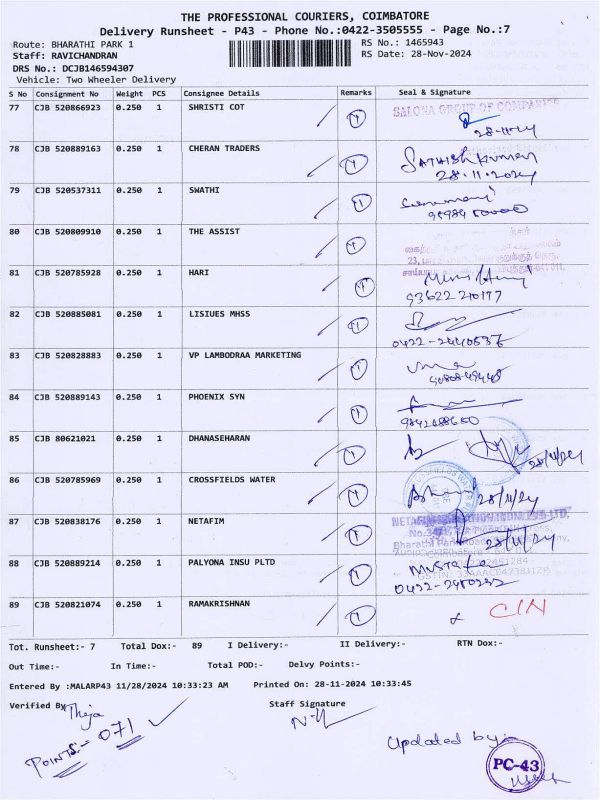 THE PROFESSIONAL COURIERS, COIMBATORE
Delivery Runsheet - P43 - Phone No.:0422-3505555 - Page No.:7
Route: BHARATHI PARK 1 RS No.: 1465943
Staff: RAVICHANDRAN RS Date: 28-Nov-2024
DRS No.: DCJB146594307
Vehicle: Two Wheeler Delivery
S No Consignment No Weight PCS Consignee Details Remarks Seal & Signature
77 CJB 520866923 0.250 1 SHRISTI COT SALONA GROUP OF COMPANIES
28-11-24
78 CJB 520889163 0.250 1 CHERAN TRADERS Sathish kumar
28.11.2024
79 CJB 520537311 0.250 1 SWATHI
80 CJB 520809910 0.250 1 THE ASSIST
81 CJB 520785928 0.250 1 HARI
93622-210177
82 CJB 520885081 0.250 1 LISIUES MHSS
0422-2440537
83 CJB 520828883 0.250 1 VP LAMBODRAA MARKETING
84 CJB 520889143 0.250 1 PHOENIX SYN
85 CJB 80621021 0.250 1 DHANASEHARAN 28/11/24
86 CJB 520785969 0.250 1 CROSSFIELDS WATER 28/11/24
87 CJB 520838176 0.250 1 NETAFIM
28/11/24
88 CJB 520889214 0.250 1 PALYONA INSU PLTD
89 CJB 520821074 0.250 1 RAMAKRISHNAN CIN
Tot. Runsheet:- 7 Total Dox:- 89 I Delivery:- II Delivery:- RTN Dox:-
Out Time:- In Time:- Total POD:- Delvy Points:-
Entered By :MALARP43 11/28/2024 10:33:23 AM Printed On: 28-11-2024 10:33:45
Verified By Theja Staff Signature
POINTS:- 071
Updated by:-
PC-43